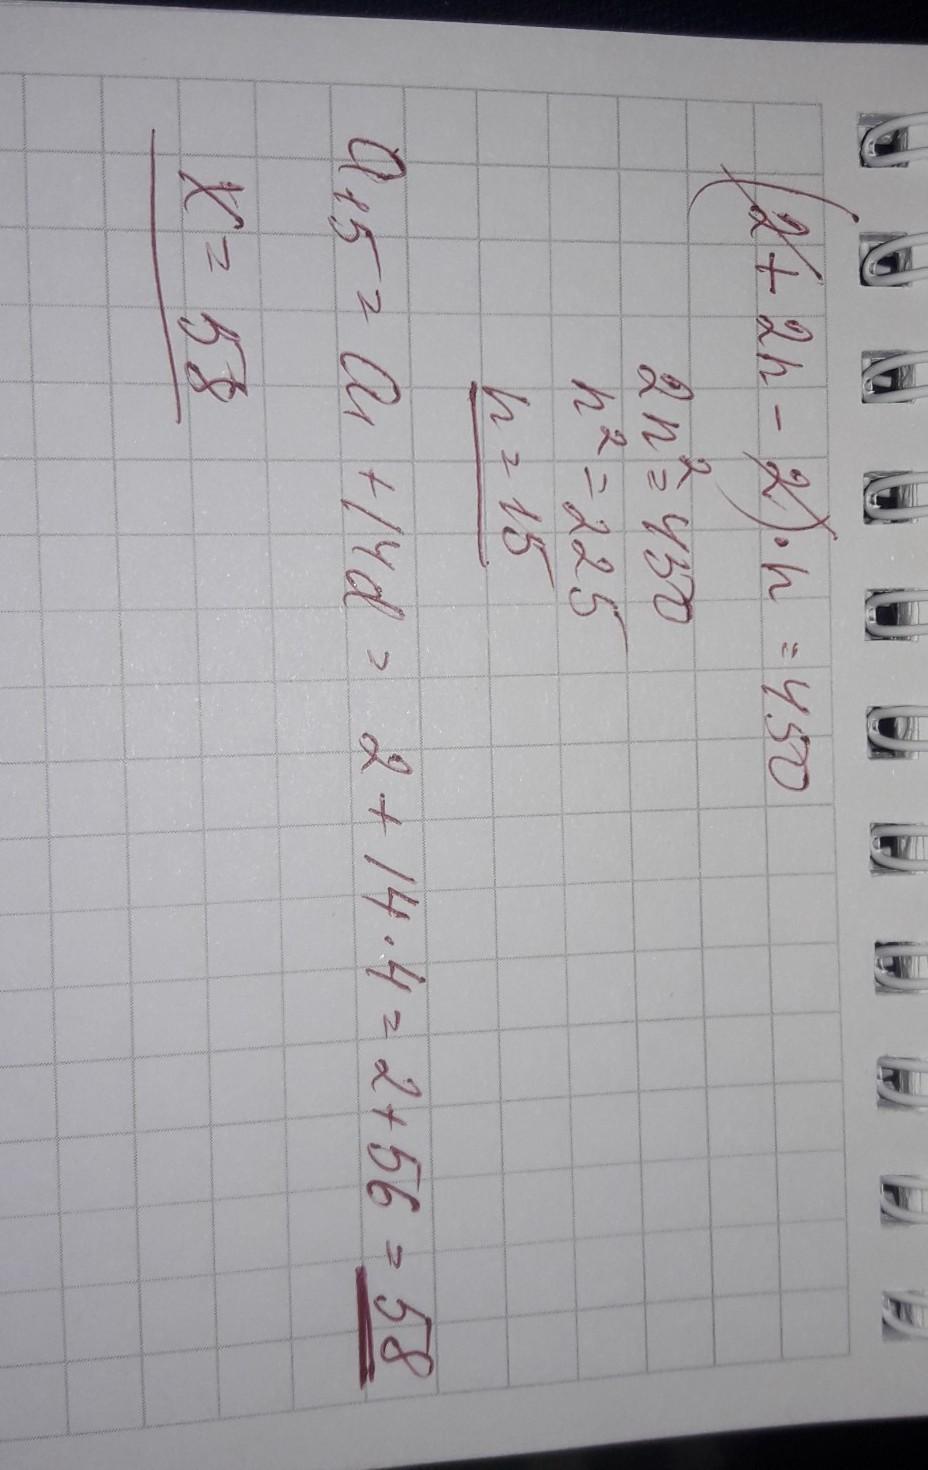 (2 + 2n - 2) · n = 450
2n² = 450
n² = 225
n = 15
a₁₅ = a₁ + 14d = 2 + 14 · 4 = 2 + 56 = 58
x = 58